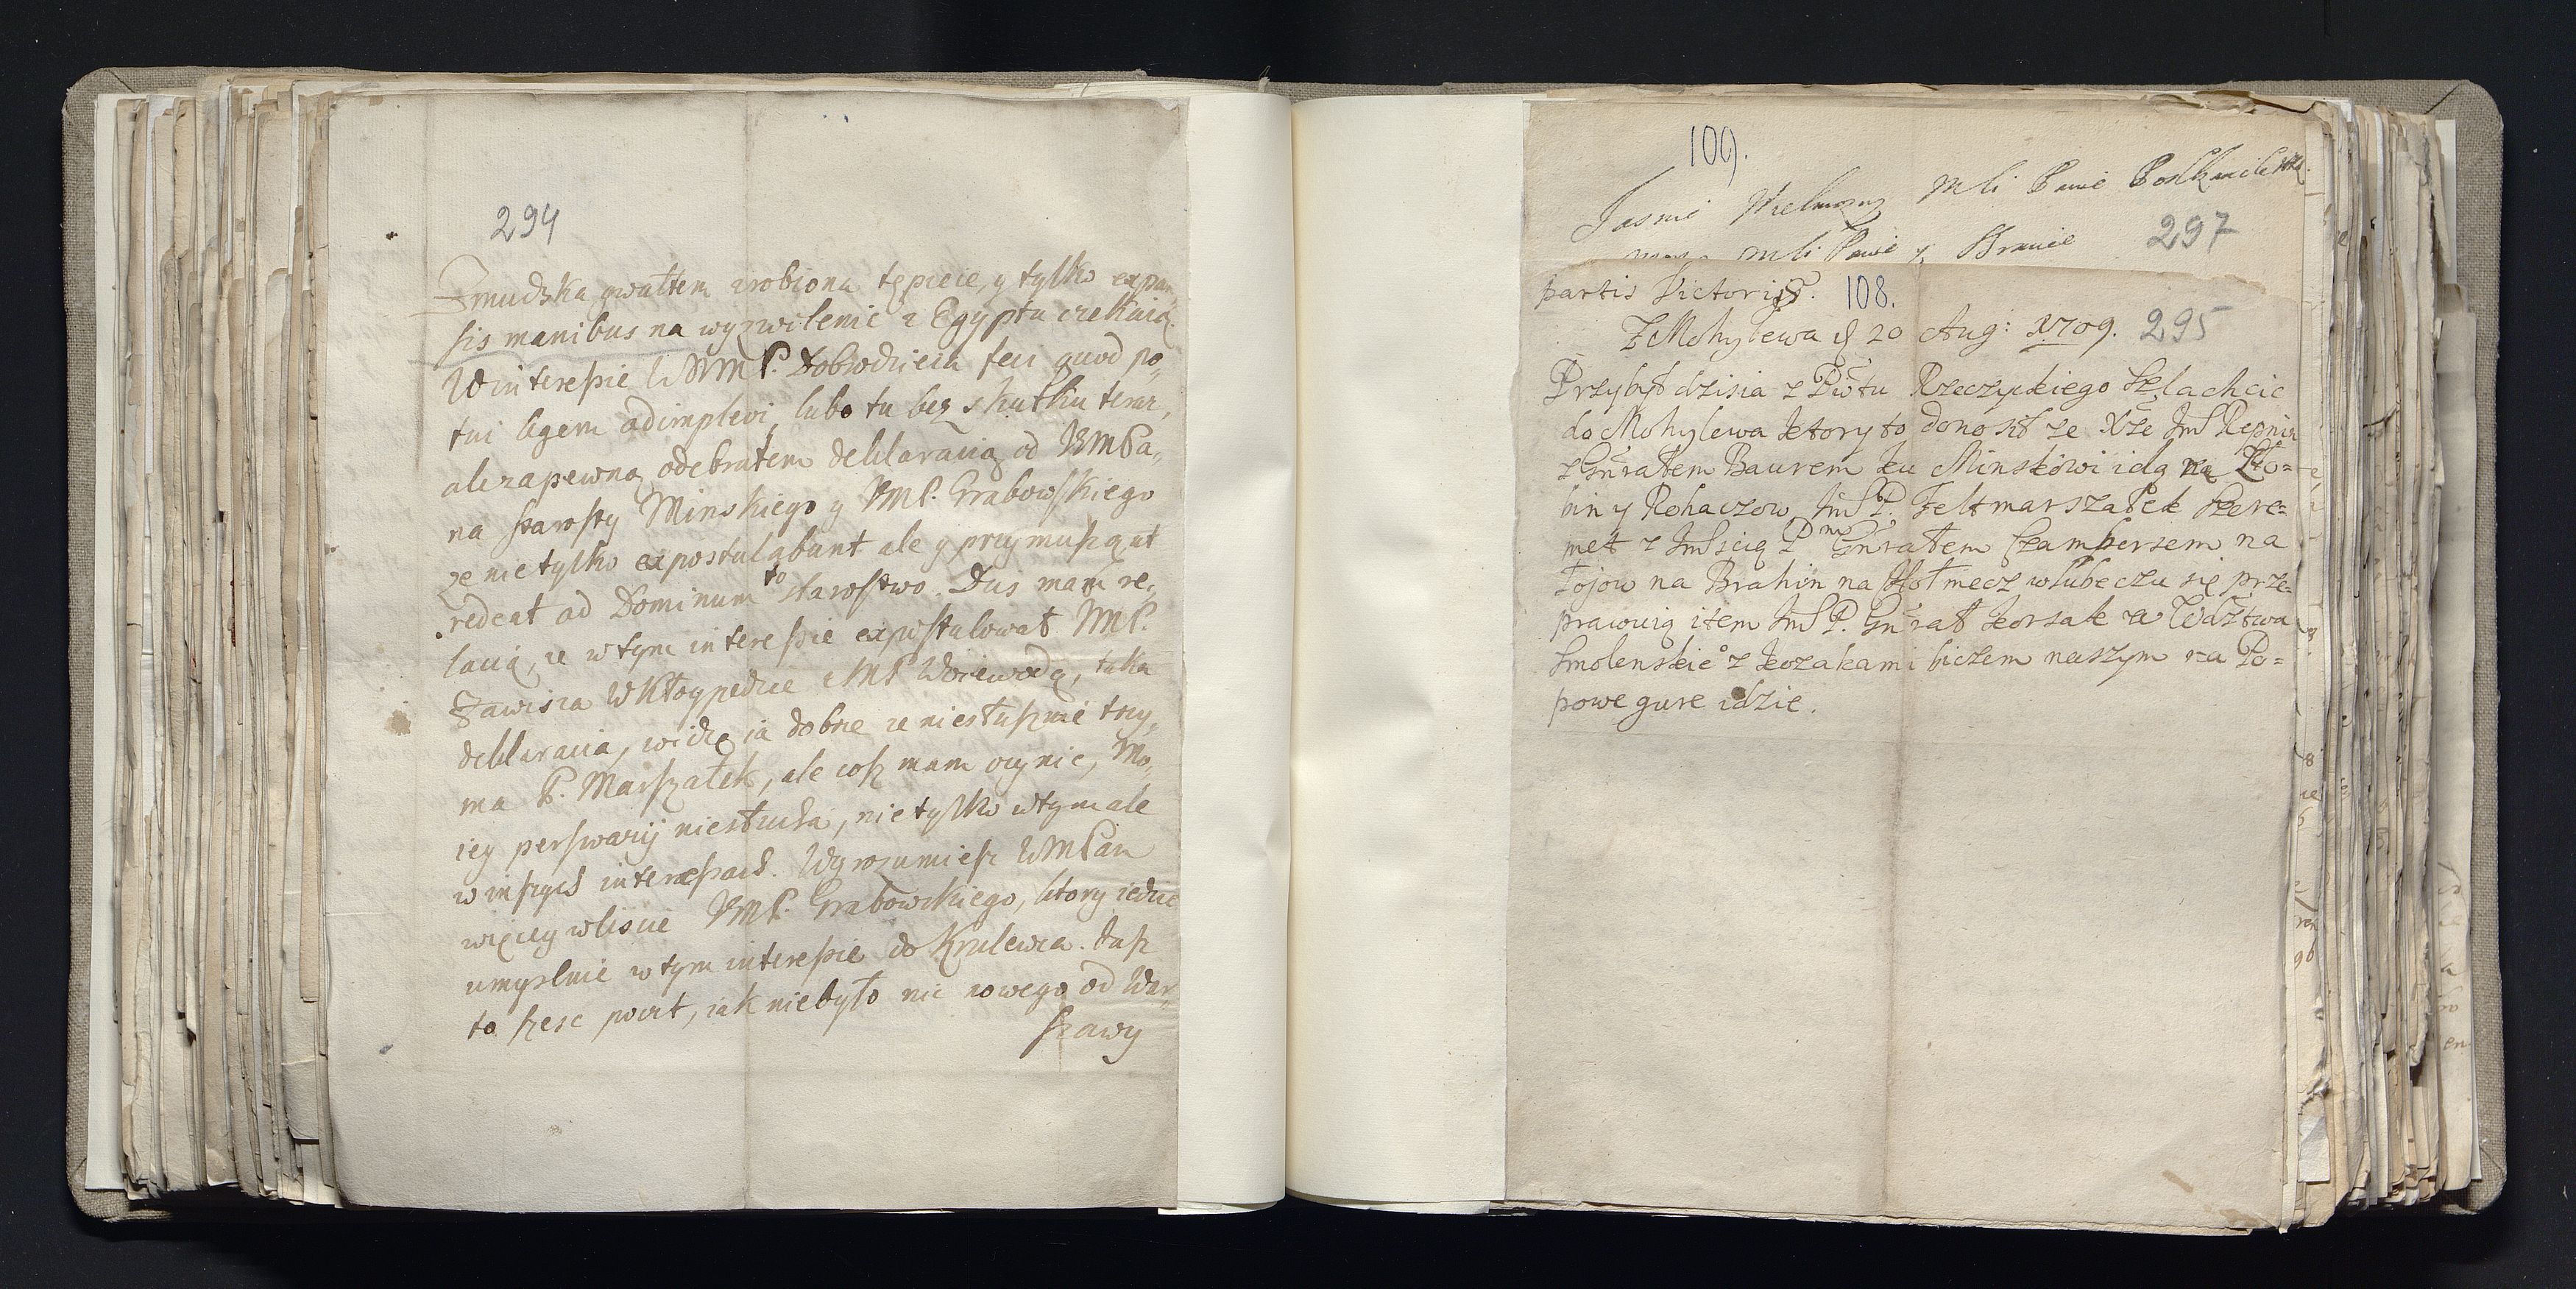 294
Zmudzka gwałtem zrobiona tępieie, y tylko expan
sis manibus na wyzwilenie z Egyptu czekaią.
W interessie WMMP. Dobrodzieia feci quod po,,
tui legem adimplevi, lubo tu bez skutku teraz,
ale zapewną odebrałem deklaracią od JEMPa,,
na starosty Minskiego y JEMP. Grabowskiego
ze nie tylko expostulabunt ale y przymuszą ut
redeat ad Dominum to starostwo. Dziś mam re,,
lacią, że w tym interessie expostulował JMP.
Zawisza w Kłoypedzie JMP Woiewodą, taka
deklaracia, widzę ia dobrze że niesłusznie trzy,,
ma P. Marszałek, ale cosz mam czynic, Mo,,
iey perswazij niesłucha, nie tylko w tym ale
w inszych interessach. Wyrozumiesz WMPan
więcey w liscie JEMP. Grabowskiego, ktory iedzie
umyslnie w tym interessie do Krulewca. Jusz
to szesc poczt, iak niebyło nic nowego od War,,
szawy
109.
Jasnie Wielmozny Mći Panie Podkanclerzy
Mći Panie y Bracie 297
partis Victorię. 108.
Z Mohylewa d 20 Aug: 1709. 295
Przybył dzisia z Pwtu Rzeczyckiego Szlachcic
do Mohylewa ktory to donosił ze Xże JmS Repnin
z Gnrałem Baurem ku Minskowi idą na Zło=
bin y Rohaczow JmS P. Feltmarszałek Szere=
met z JmScią Pnm Gnrałem Czambersem na
Łojow na Brahin na Hołmecz w Lubeczu się prze=
prawuią item JmS P. Gnrał Korsak z Wdztwa
Smolenskieo z kozakami biczem naszym na Po=
powe gure idzie.